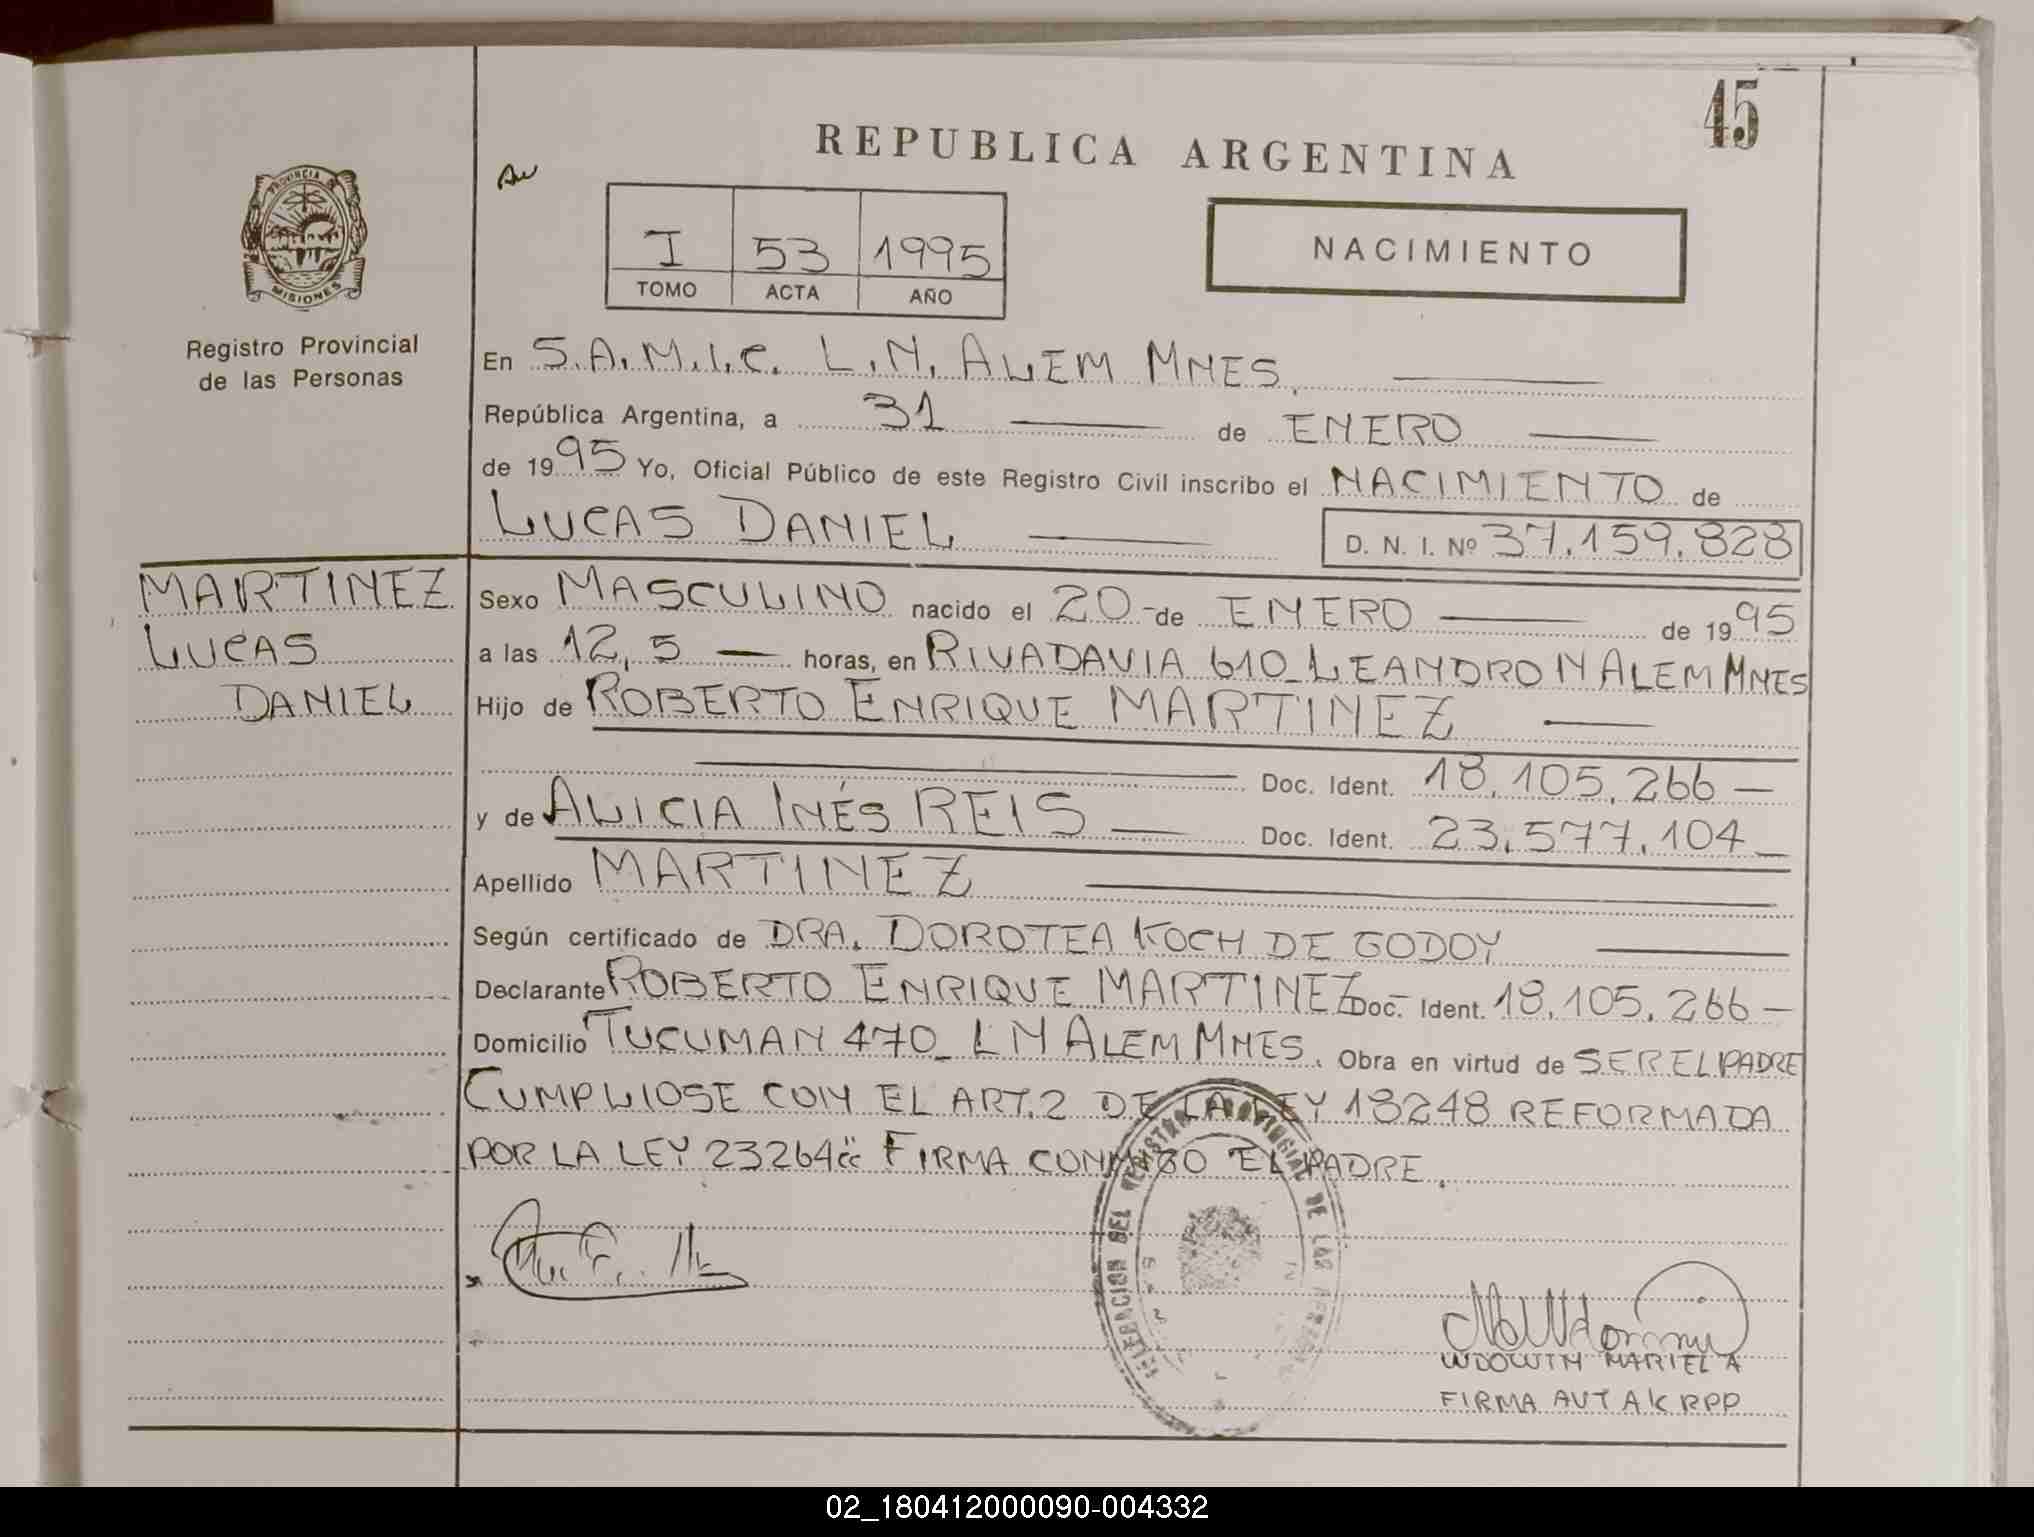 45
REPUBLICA ARGENTINA
PROVINCIA DE
MISIONES
Registro Provincial
de las Personas
I 53 1995
TOMO ACTA AÑO
NACIMIENTO
En S.A.M.I.C. L.N. ALEM MNES.
República Argentina, a 31 de ENERO
de 1995 Yo, Oficial Público de este Registro Civil inscribo el NACIMIENTO de
LUCAS DANIEL D. N. I. Nº 37.159.828
MARTINEZ
LUCAS
DANIEL
Sexo MASCULINO nacido el 20 - de ENERO de 1995
a las 12,5 horas, en RIVADAVIA 610_LEANDRO N ALEM MNES
Hijo de ROBERTO ENRIQUE MARTINEZ
Doc. Ident. 18.105.266 —
y de ALICIA INÉS REIS Doc. Ident. 23.577.104_
Apellido MARTINEZ
Según certificado de DRA. DOROTEA KOCH DE GODOY
Declarante ROBERTO ENRIQUE MARTINEZ Doc. Ident. 18.105.266 —
Domicilio TUCUMAN 470_ L N ALEM MNES. Obra en virtud de SER EL PADRE
CUMPLIOSE CON EL ART.2 DE LA LEY 18248 REFORMADA
POR LA LEY 23264 FIRMA CONMIGO EL PADRE.
DEL REGISTRO PROVINCIAL DE LAS
MARIEL A
FIRMA AUT A K RPP
02_180412000090-004332